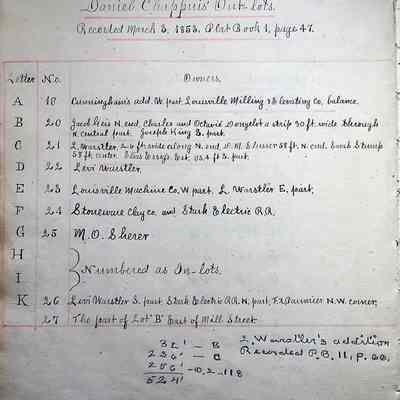 Daniel Chappuis' Out-lots.
Recorded March 3, 1853. Plat Book 1, page 47.
Letter No. Owners.
A 18 Cunningham's add. W. part Louisville Milling & Elevating Co, balance.
B 20 Jacob Keis N. end. Charles and Octavid Donzelot a strip 30 ft. wide through
N. central part. Joseph King S. part.
C 21 L. Warstler, 20 ft wide along N. end. 58 ft. N. end. Enick Stump
58 ft. center. Est. 85.4 ft S. part.
D 22 Levi Warstler.
E 23 Louisville Machine Co. W. part. L. Warstler E. part.
F 24 Stoneware Clay Co. and Stark Electric R.R.
G 25 M. O. Sherer
H
} Numbered as In-lots.
I
K 26 Levi Warstler S. part Stark Electric R.R. N. part, N.W. corner.
27 The part of Lot "B" East of Mill Street
32' - B
236' - C
256' - O.L. 118
524'
L. Warstler's addition
Recorded P.B. 11, P. 60.